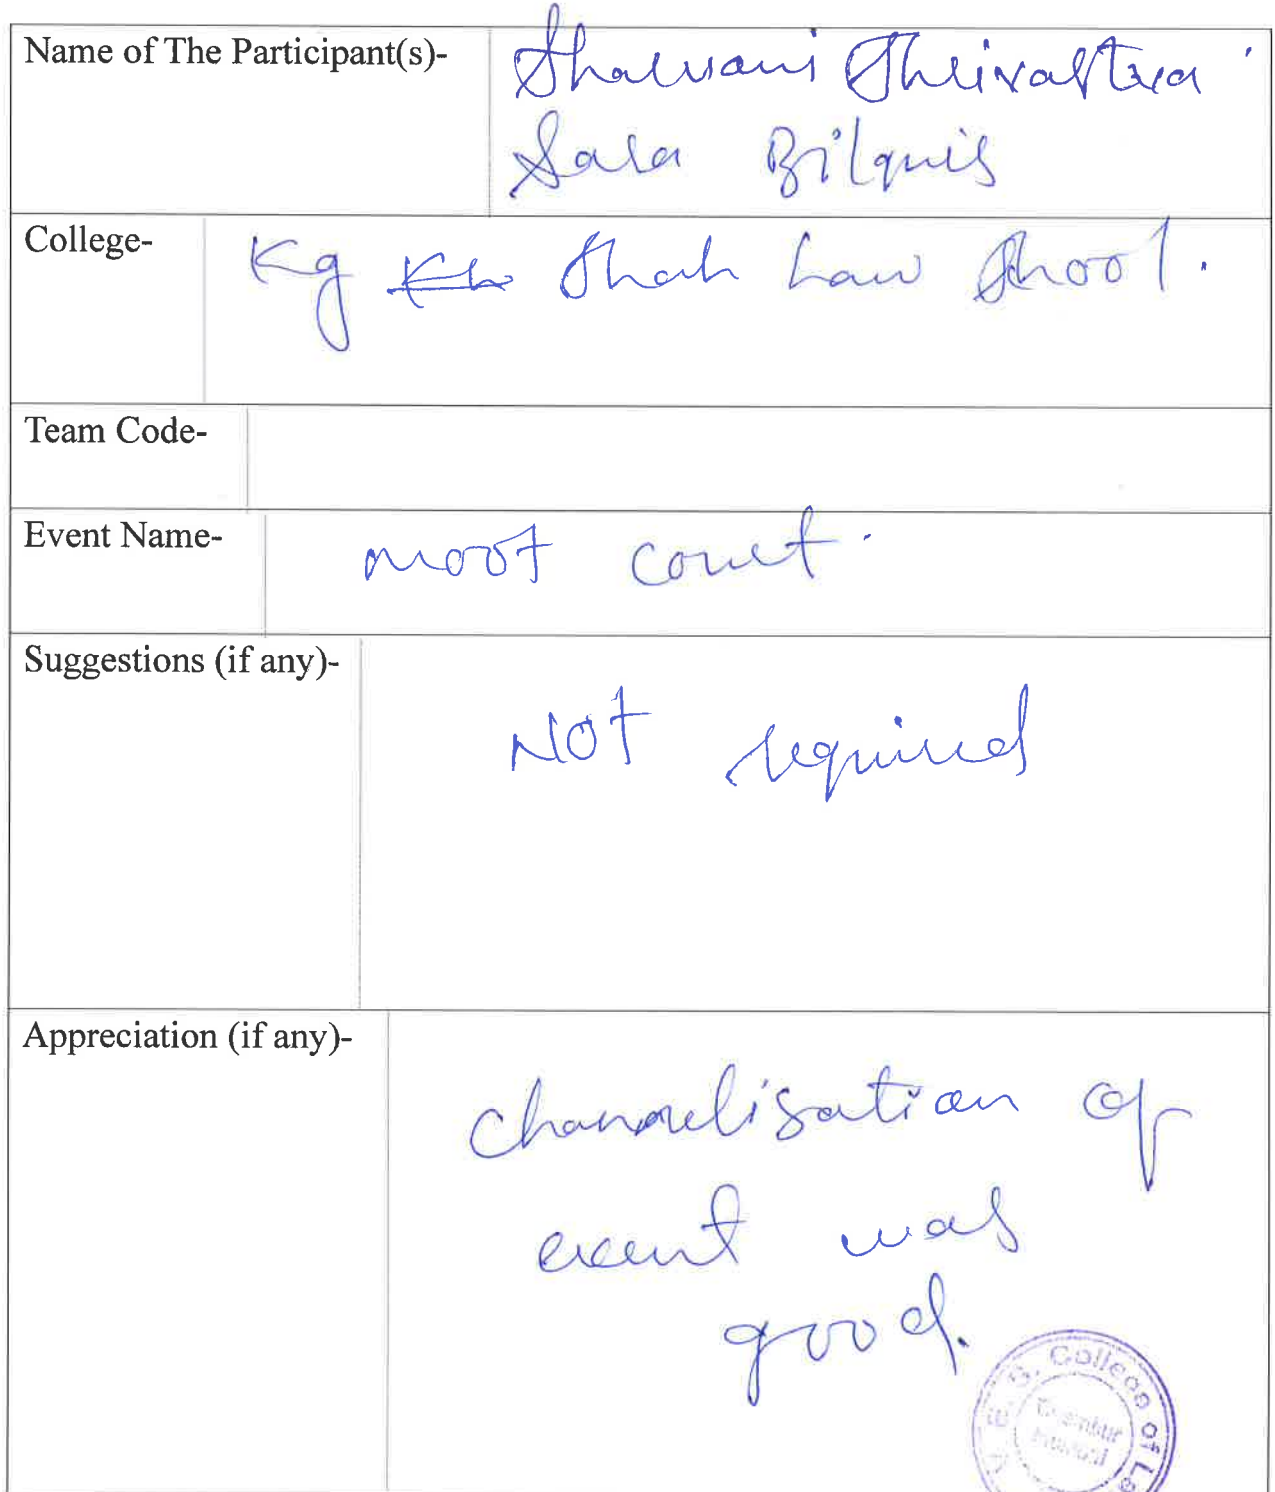 Name of The Participant(s)- Shalvani Shrivastva
Sara Bilquis
College- Kg Shah Law Shool.
Team Code-
Event Name- moot court.
Suggestions (if any)-
NOT required
Appreciation (if any)-
Channelisation of
event was
good.
E. S. College of La
Chembur
Mumbai